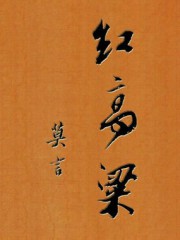 红高粱
莫言